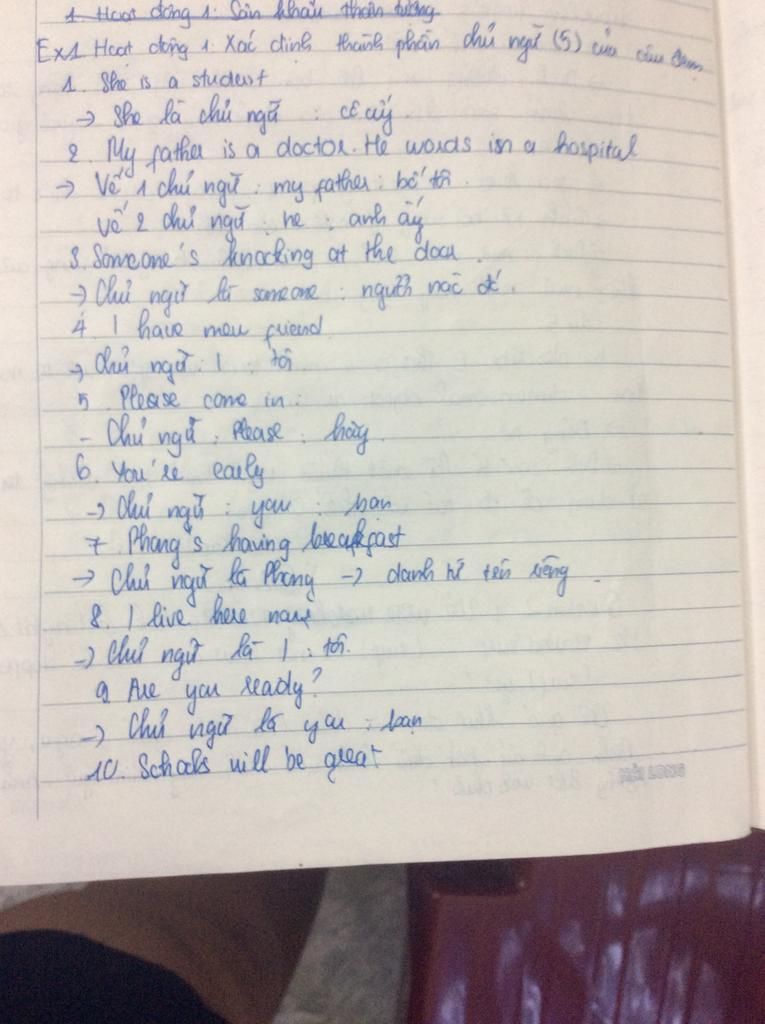 1. Hoạt động 1: Sân khấu thần tượng
Ex1 Hoạt động 1: Xác định thành phần chủ ngữ (S) của câu
1. She is a student
→ She là chủ ngữ : cô ấy
2. My father is a doctor. He words in a hospital
→ Vế 1 chủ ngữ : my father : bố tôi.
Vế 2 chủ ngữ : he : anh ấy
3. Someone's knocking at the door.
→ Chủ ngữ là someone : người nào đó.
4. I have new friend
→ Chủ ngữ : I : tôi
5. Please come in :
- Chủ ngữ : Please : hãy.
6. You're early
→ Chủ ngữ : you : bạn
7. Phong's having breakfast
→ Chủ ngữ là Phong → danh từ tên riêng.
8. I live here now
→ Chủ ngữ là I : tôi.
9. Are you ready?
→ Chủ ngữ là you : bạn
10. Schools will be great